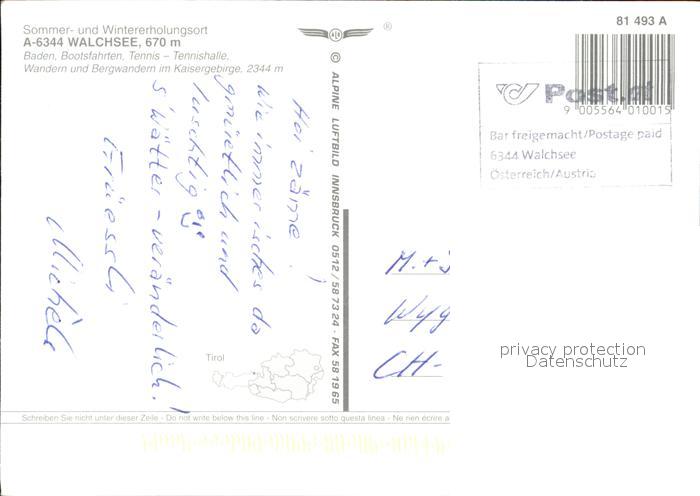 Sommer- und Wintererholungsort
A-6344 WALCHSEE, 670 m
Baden, Bootsfahrten, Tennis – Tennishalle,
Wandern und Bergwandern im Kaisergebirge, 2344 m
®
81 493 A
9 005564 010015
Post.at
Bar freigemacht/Postage paid
6344 Walchsee
Österreich/Austria
© ALPINE LUFTBILD INNSBRUCK 0512/58 73 24 · FAX 58 19 65
Hoi zäme!
Wie immer isches da
gmüetlich und
luschtig
S'Wätter - veränderlich!
Früessli
Michèle
M. +
Wyg
CH-
privacy protection
Datenschutz
Tirol
Schreiben Sie nicht unter dieser Zeile - Do not write below this line - Non scrivere sotto questa linea - Ne rien écrire a